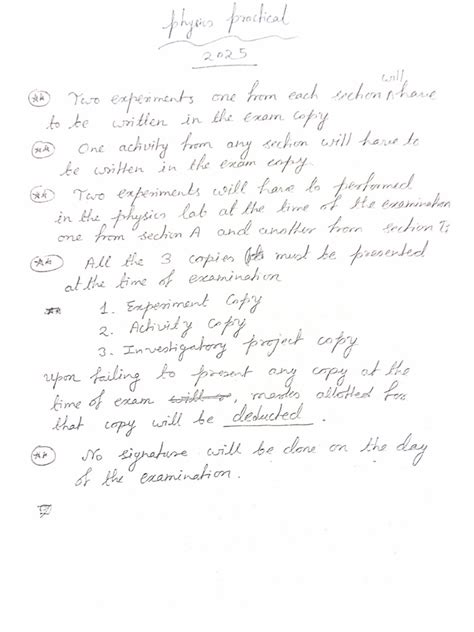 physics practical
2025
** Two experiments one from each section will have
to be written in the exam copy
** One activity from any section will have to
be written in the exam copy.
** Two experiments will have to performed
in the physics lab at the time of the examination
one from section A and another from section B
** All the 3 copies must be presented
at the time of examination
** 1. Experiment Copy
2. Activity Copy
3. Investigatory project copy
upon failing to present any copy at the
time of exam will, marks allotted for
that copy will be deducted.
** No signature will be done on the day
of the examination.